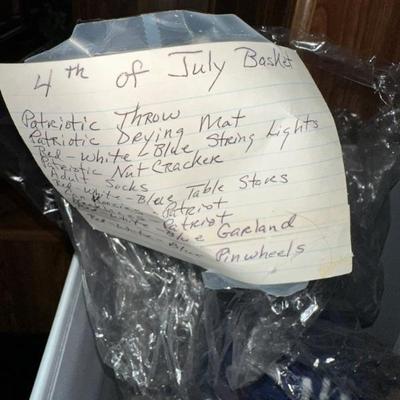 4th of July Basket
Patriotic Throw
Patriotic Drying Mat
Red-white-Blue String Lights
Patriotic NutCracker
Adult Socks
Red-white-Blue Table Stars
Patriot
Patriot
Blue Garland
Red-white-Blue Pinwheels